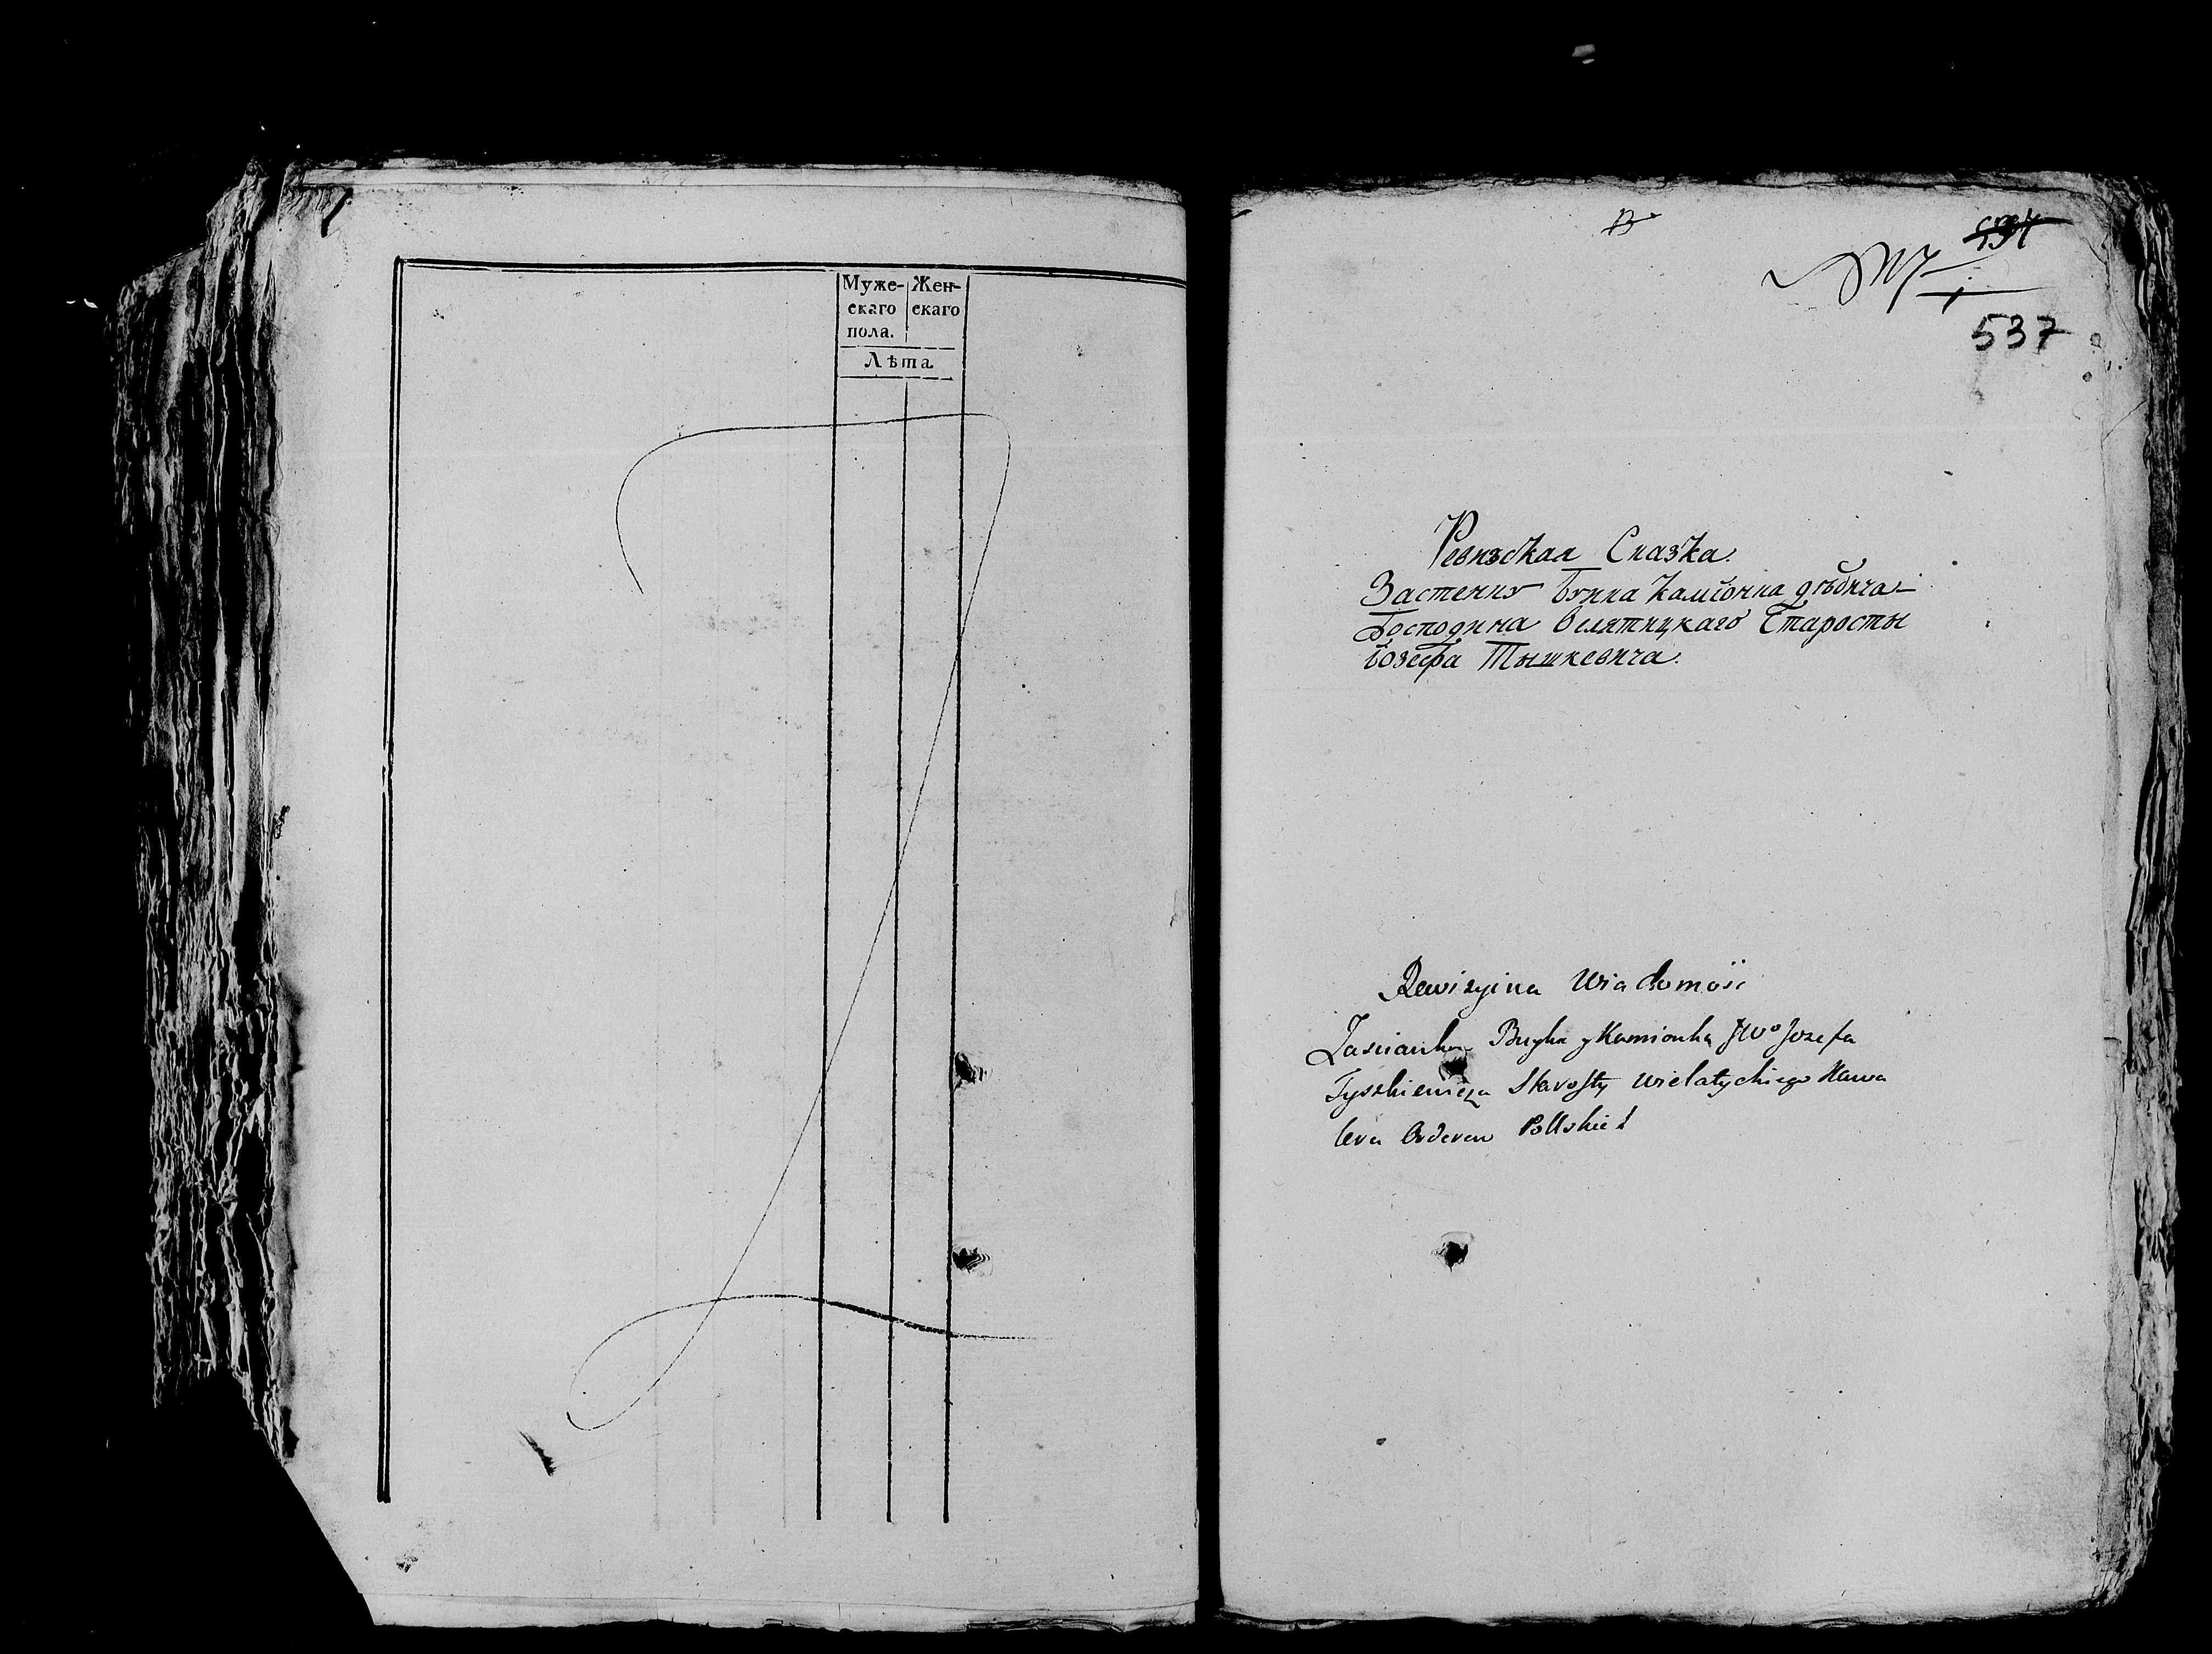 Муже-
скаго
пола.
Жен-
скаго
Лѣта
537
Ревизская Сказка.
Застенку Буйка Камiонка дѣдича
Господина Велятицкаго Старосты
Iозефа Тышкевича.
Rewizyina Wiadomość
Zascianku Buyka y Kamionka JWo Jozefa
Tyszkiewicza Starosty Wielatyckiego Kawa
lera Orderow Pollskich